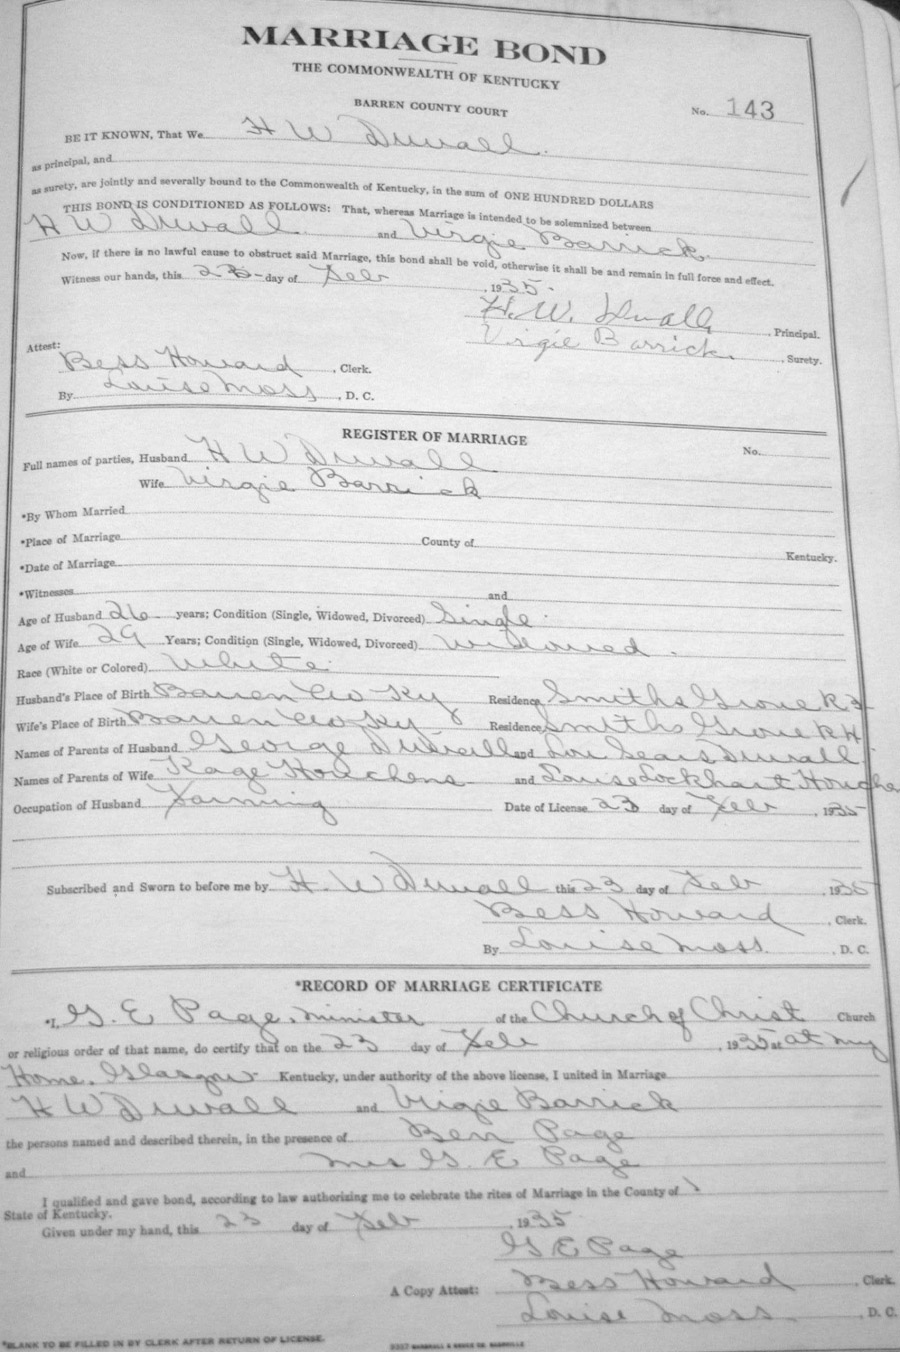 MARRIAGE BOND
THE COMMONWEALTH OF KENTUCKY
BARREN COUNTY COURT
No. 143
BE IT KNOWN, That We H W Duvall.
as principal, and
as surety, are jointly and severally bound to the Commonwealth of Kentucky, in the sum of ONE HUNDRED DOLLARS
THIS BOND IS CONDITIONED AS FOLLOWS: That, whereas Marriage is intended to be solemnized between
H W Duvall and Virgie Barrick.
Now, if there is no lawful cause to obstruct said Marriage, this bond shall be void, otherwise it shall be and remain in full force and effect.
Witness our hands, this 23- day of Feb, 1935-
H. W. Duvall, Principal.
Virgie Barrick, Surety.
Attest:
Bess Howard, Clerk.
By Louise Moss, D. C.
REGISTER OF MARRIAGE
No.
Full names of parties, Husband H W Duvall
Wife Virgie Barrick
*By Whom Married
*Place of Marriage County of Kentucky.
*Date of Marriage
*Witnesses and
Age of Husband 26 years; Condition (Single, Widowed, Divorced) Single.
Age of Wife 29 Years; Condition (Single, Widowed, Divorced) Widowed.
Race (White or Colored) White.
Husband's Place of Birth Barren Co Ky Residence Smiths Grove R
Wife's Place of Birth Barren Co Ky Residence Smiths Grove R
Names of Parents of Husband George Duvall and Lou Sears Duvall.
Names of Parents of Wife Houchens and Louise Lockhart
Occupation of Husband Farming Date of License 23 day of Feb, 1935
Subscribed and Sworn to before me by H. W Duvall this 23 day of Feb, 1935
Bess Howard, Clerk.
By Louise Moss., D. C.
*RECORD OF MARRIAGE CERTIFICATE
*I, G. E Page, Minister of the Church of Christ Church
or religious order of that name, do certify that on the 23 day of Feb, 1935 at at my
Home, Glasgow- Kentucky, under authority of the above license, I united in Marriage
H W Duvall and Virgie Barrick
the persons named and described therein, in the presence of Ben Page
and Mrs G. E Page
I qualified and gave bond, according to law authorizing me to celebrate the rites of Marriage in the County of
State of Kentucky.
Given under my hand, this 23 day of Feb, 1935
G E Page
A Copy Attest: Bess Howard, Clerk.
Louise Moss., D. C.
*BLANK TO BE FILLED IN BY CLERK AFTER RETURN OF LICENSE.